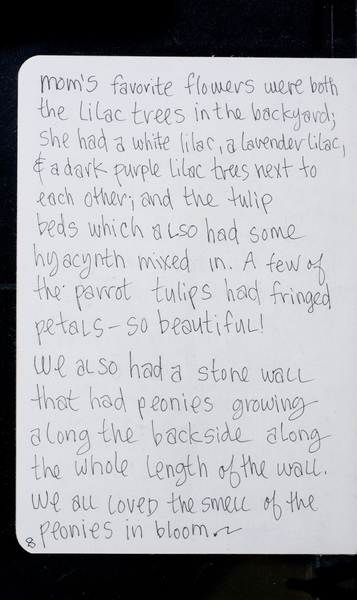 mom's favorite flowers were both
the lilac trees in the backyard;
she had a white lilac, a lavender lilac,
& a dark purple lilac trees next to
each other; and the tulip
beds which also had some
hyacynth mixed in. A few of
the parrot tulips had fringed
petals - so beautiful!
We also had a stone wall
that had peonies growing
along the backside along
the whole length of the wall.
We all loved the smell of the
peonies in bloom.
8